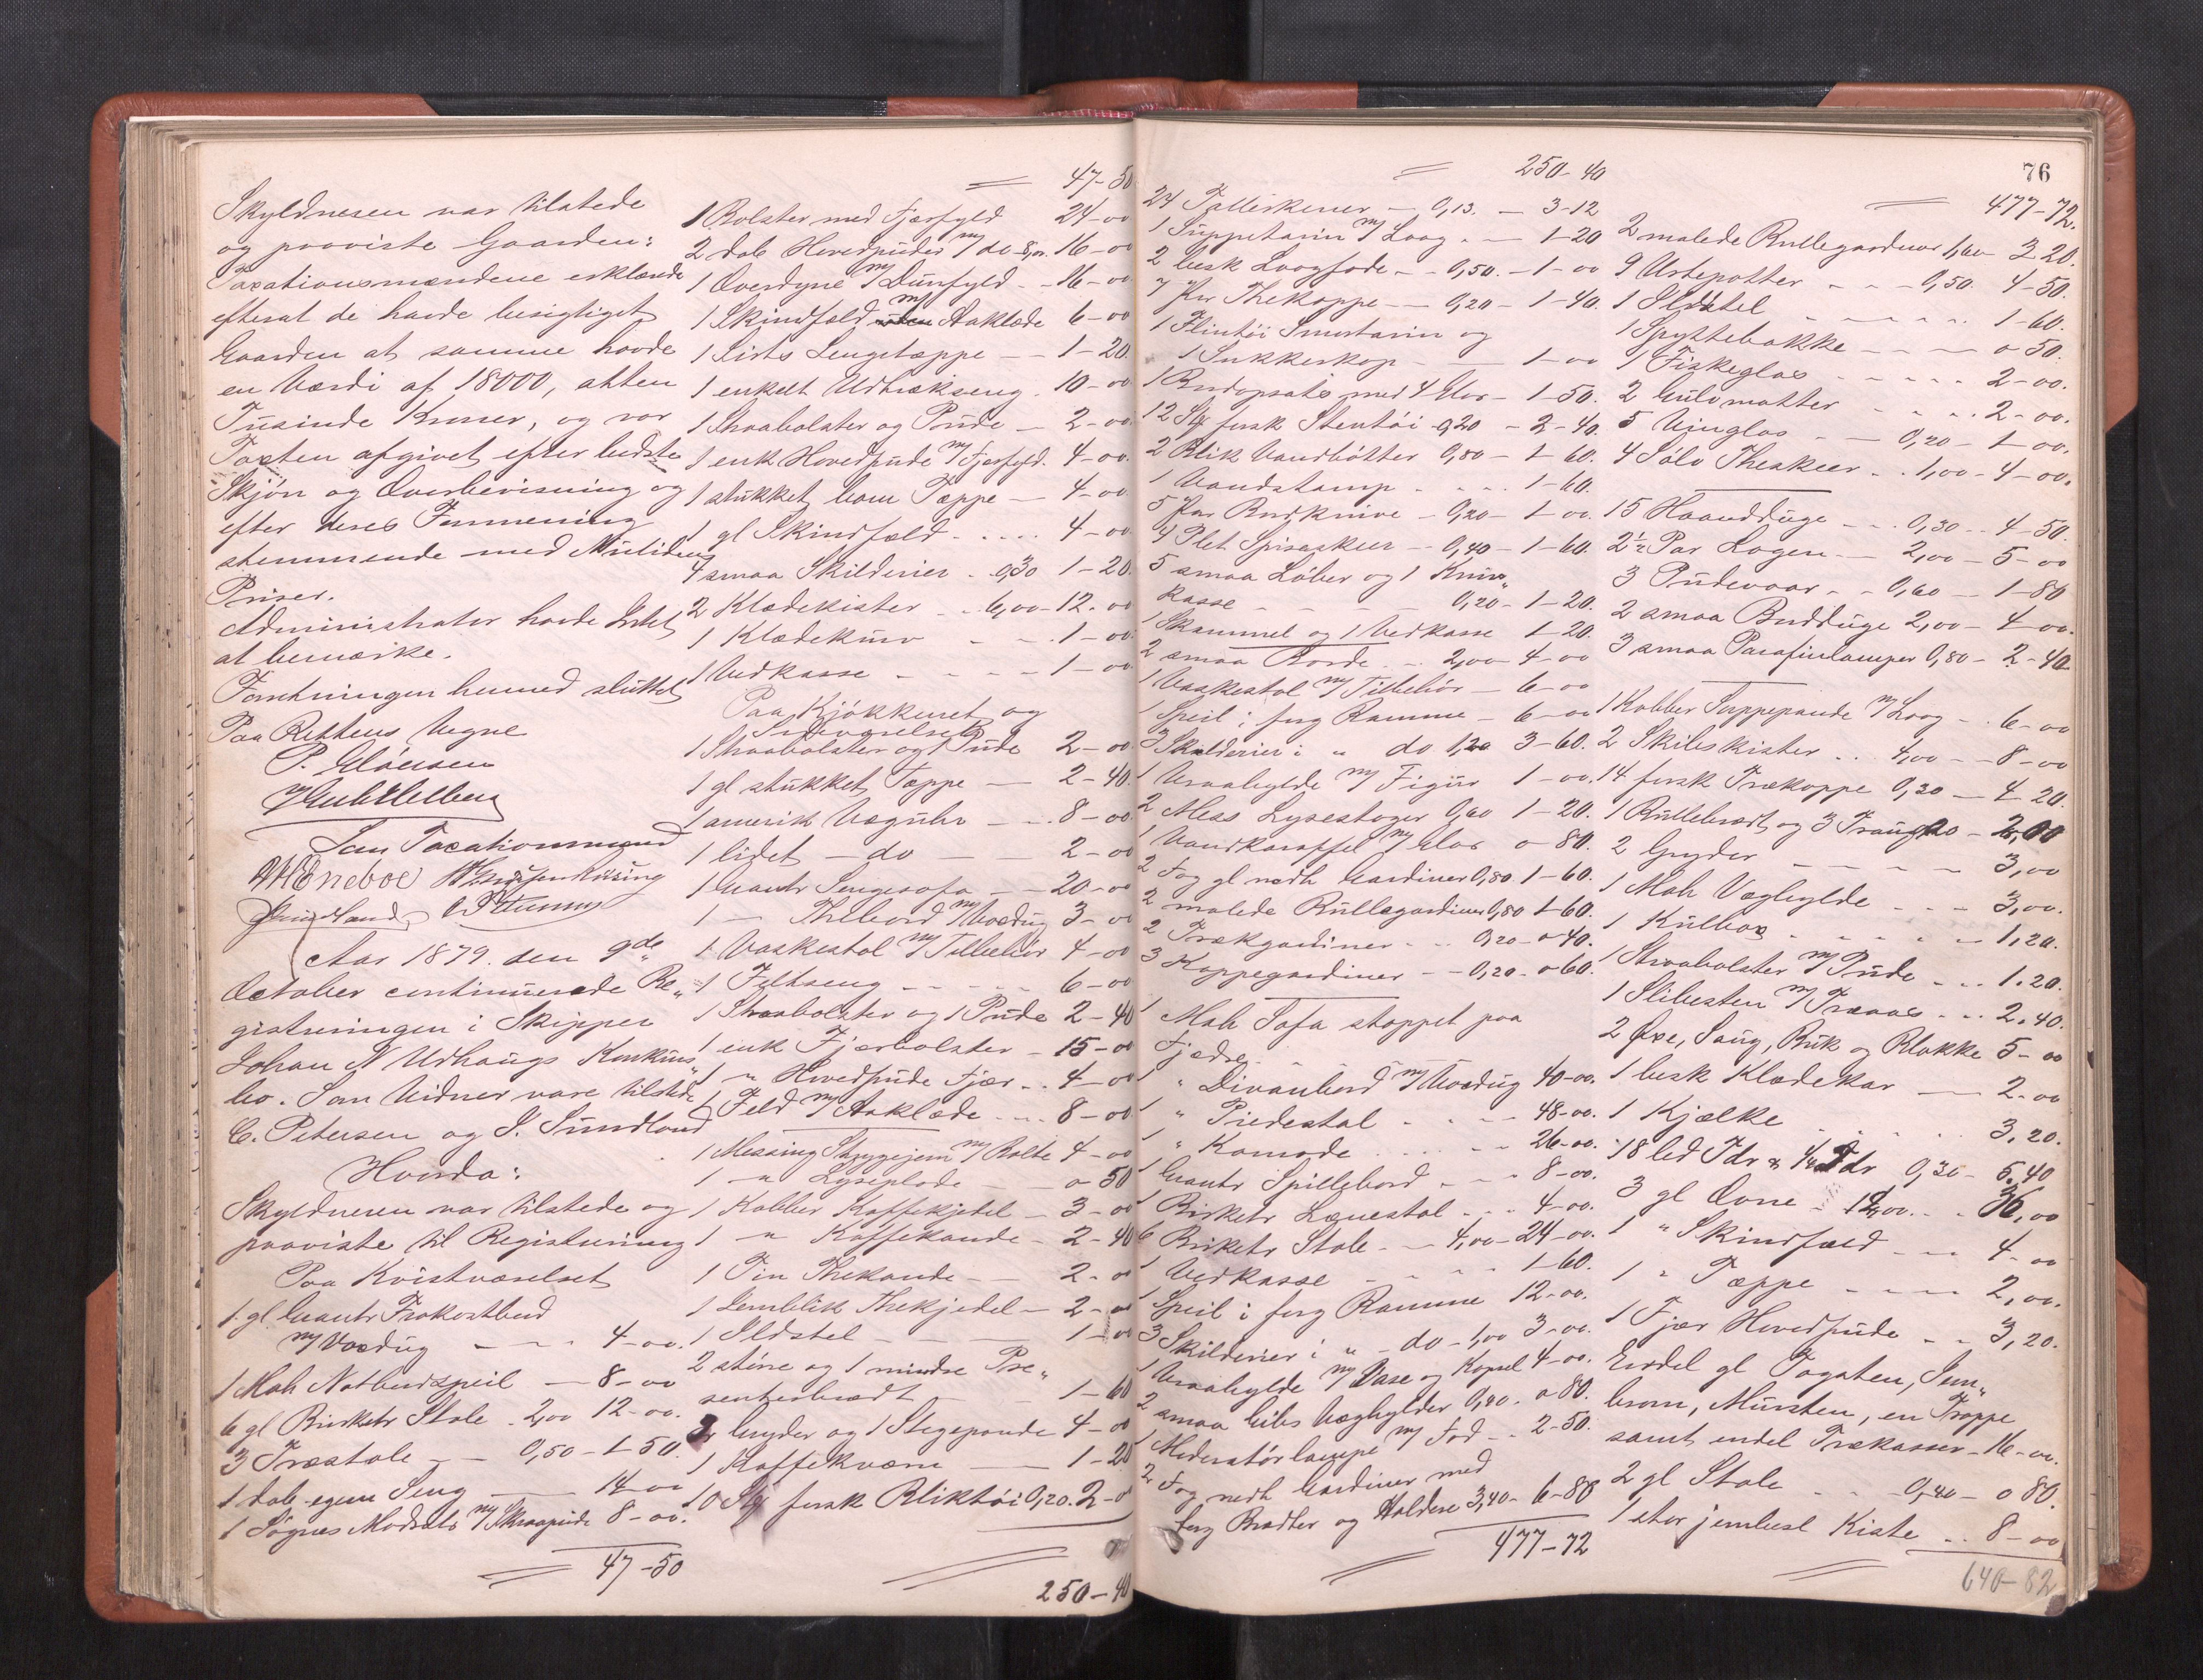 Skyldneren var tilstede
og paaviste Gaarden:
Taxationsmændene erklærede
efterat de havde besigtiget
Gaarden at samme havde
en Værdi af 18000, atten
Tusinde Kroner, og var
Taxten afgivet efter bedste
Skjøn og Overbevisning og
efter deres Formening
stemmende med Nutidens
Priser.
Administrator havde Intet
at bemærke.
Forretningen hermed sluttet
Paa Rettens Vegne
Som Taxationsmænd
Aar 1879. den 9de
October continuerede Re„
gistreringen i Skipper
Johan N Udhaugs Konkurs„
bo. Som Vidner vare tilstede
C. Petersen og J. Sundland
Hvorda:
Skyldneren var tilstede og
paaviste til Registrering
Paa Kvistværelset
1 gl Graantr Frokostbord
m/ Voxdug - - - 4-00.
1 Mah Natbordspeil - 8-00
6 gl Birketr Stole . 2,00 12-00.
3 Træstole - - 0,50 - 1-50.
1 dob egen Seng - 14-00
1 Søgræs Madrats m/ Skraapude 8-00.
47-50
= 47-50
1 Bolster med Fjærfyld 24-00
2 dob Hovedpuder m/ do 8,00. 16-00
1 Overdyne m/ Dunfyld - - 16-00
1 Skindfeld m/ Aaklæde 6-00
1 Sirts Sengetæppe - - 1-20.
1 enkelt Udtræksseng . 10-00
1 Straabolster og Pude - 2-00.
1 enk Hovedpude m/ Fjærfyld. 4-00.
1 stukket bom Tæppe - 4-00.
1 gl Skindfeld . . . . . 4-00.
4 smaa Skilderier . 0,30 1-20.
2 Klædekister . . 6,00 - 12-00
1 Klædekurv - - . 1-00.
1 Vedkasse - - - - 1-00
Paa Kjøkkenet og
1 Straabolster og 1 Pude 2-00.
1 gl stukket Tæppe - 2-40.
1 amerik Væguhr - - . 8-00
1 lidet - do - - 2-00
1 Graantr Sengesofa - - 20-00
1 - Thebord m/ Voxdug 3-00
1 Vaskestol m/ Tilbehør 4-00
1 Feltseng - - - - - 6-00
1 Straabolster og 1 Pude 2-40
1 enk Fjærbolster - 15-00
1 " Hovedpude Fjær . . 4-00
1 Feld m/ Aaklæde . . . 8-00
1 Messing Strygejern m/ Bolte 4-00
1 - " Lyseplade - - 0 50
1 Kobber Kaffekjedel - 3-00
1 - " Kaffekande - 2-40
1 Tin Thekande - - 2-00
1 Jernblik Thekjedel - 2-00
1 Ildstel - - - - 1-00
2 større og 1 mindre Pre„
senterbrædt - - 1-60
2 Gryder og 1 Stegepande 4-00
1 Kaffekværn - 1-20
10 Stk forsk Bliktøi 0,20. 2-00
250-40
= 250-40
24 Tallerkener - 0,13. - 3-12
1 Suppeterin m/ Laag . - 1-20
2 besk Laagfade - - 0,50. - 1-00
7 Par Thekoppe - - 0,20 - 1-40.
1 Flintøi Smørterin og
1 Sukkerkop - - 1-00
1 Bordopsats med 4 Glas - 1-50.
12 Stk forsk Stentøi 0,20 - 2-40.
2 Blik Vandbøtter 0,80 - 1-60.
1 Vandstamp . - . . 1-60.
5 Par Bordknive - 0,20 - 1-00.
4 Plet Spiseskeer - 0,40 - 1-60.
5 smaa Løber og 1 Kniv„
kasse - - - - 0,20 - 1-20.
1 Skammel og 1 Vedkasse 1-20.
2 smaa Borde . . . 2,00 4-00
1 Vaskestol m/ Tilbehør - 6-00
1 Speil i forg Ramme - 6-00
3 Skilderier i " do 1,20 3-60.
1 Vraahylde m/ Figur 1-00.
2 Mess Lysestager 0,60 1-20.
1 Vandkaraffel m/ Glas 0 80.
2 Fag gl nedh Gardiner 0,80. 1-60.
2 malede Rullegardiner 0,80 1-60.
2 Trækgardiner - - . 0,20 - 0 40.
3 Kappegardiner - - 0,20 - 0 60.
1 Mah Sofa stoppet paa
Fjædre - - -
1 " Divanbord m/ Voxdug 40-00.
1 " Piedestal . . . - 48-00.
1 " Komode . . . . - 26-00.
1 Graantr Spillebord - - - 8-00.
1 Birketr Lænestol - - - 4-00.
6 Birketr Stole - - 4,00 - 24-00.
1 Vedkasse - - - - 1-60.
1 Speil i forg Ramme 12-00.
3 Skilderier i " - do - 1,00 3-00.
1 Vraahylde m/ Vase og Kopsel 4-00.
2 smaa Gibs Væghylder 0,40. 0 80.
1 Moderatørlampe m/ Fod . . 2-50.
2 Fag nedh Gardiner med
forg Brædter og Holdere 3,40 - 6-80
477-72
76
= 477-72.
2 malede Rullegardiner 1,60 3 20.
9 Urtepotter - - - 0,50. 4-50.
1 Ildstel - - - - - . 1-60.
1 Spyttebakke - - - - 0 50.
1 Fiskeglas - - - - - . 2-00.
2 Gulvmatter - - . . 2-00.
5 Vinglas - - 0,20 - 1-00.
4 Sølv Theskeer . . 1,00 - 4-00.
15 Haandduge - - . 0,30 . . 4-50.
2½ Par Lagen - 2,00 - 5-00
3 Pudevaar - - 0,60 - 1-80
2 smaa Bordduge 2,00 - 4-00.
3 smaa Parafinlamper 0,80 - 2-40
1 Kobber Suppepande m/ Laag - . 6-00
2 Skibskister . . 4,00 - - 8-00
14 forsk Trækoppe 0,30 - 4 20.
1 Rullebrædt og 3 Traug - 2,00
2 Gryder - - - - - 3,00
1 Mah Væghylde - - - 3,00.
1 Kulbox . . - - - - 1,20.
1 Straabolster m/ Pude - . . 1.20.
1 Slibesten m/ Træaas . . . 2.40.
2 Øxe, Saug, Buk og Blokke 5-00
1 besk Klædekar - 2-00
1 Kjælke . . . . . . 3,20.
18 led Tdr & ¼ Tdr 0,30 - 5.40
3 gl Ovne - 12,00. . . 36,00
1 " Skindfeld - - - 4-00
1 " Tæppe - - - - 2,00.
1 Fjær Hovedpude - - 3,20.
Endel gl Tagsten, Jern„
brom, Mursten, en Trappe
samt endel Trækasser - 16-00.
2 gl Stole - - - 0,40 - 0 80.
1 stor jernbesl Kiste . . 8-00
640-82